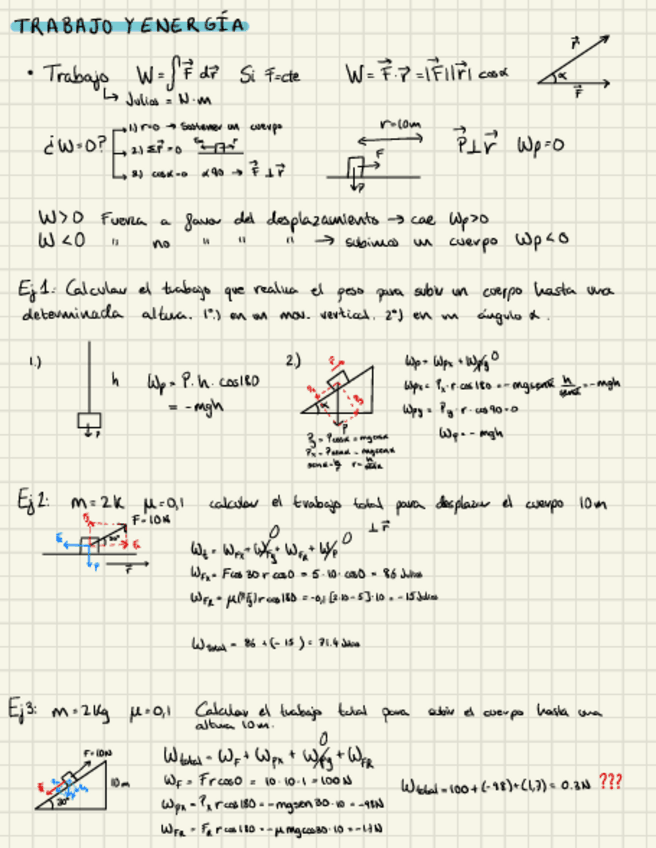 TRABAJO Y ENERGÍA
• Trabajo W = ∫ F⃗ dr⃗ Si F⃗=cte W = F⃗ · r⃗ = |F⃗||r⃗| cosα
r⃗
α
F⃗
↳ Julios = N·m
¿W=0?
1) r=0 → Sostener un cuerpo
2) ΣF⃗=0
3) cosα=0 α90 → F⃗ ⊥ r⃗
r=10m
F
P
P⃗⊥r⃗ Wp=0
W>0 Fuerza a favor del desplazamiento → cae Wp>0
W<0 " no " " " → subimos un cuerpo Wp<0
Ej 1: Calcular el trabajo que realiza el peso para subir un cuerpo hasta una
determinada altura. 1º) en un mov. vertical. 2º) en un ángulo α.
1.)
h
P
Wp = P.h.cos180
= -mgh
2.)
α
P
Py = Pcosα = mgcosα
Px = Psenα = mgsenα
senα = h/r r = h/senα
Wp = Wpx + Wpy 0
Wpx = Px·r·cos180 = -mgsenα h/senα = -mgh
Wpy = Py·r·cos90=0
Wp = -mgh
Ej 2: m=2k μ=0,1 calcular el trabajo total para desplazar el cuerpo 10m
⊥ r⃗
F=10N
30°
P
r⃗
Wt = WFx + WFy 0 + WFR + Wp 0
WFx = Fcos30 r cos0 = 5·10·cos0 = 86 Julios
= -15 Julios
Wtotal = 86 + (-15) = 71.4 Julios
Ej 3: m=2kg μ=0,1 Calcular el trabajo total para subir el cuerpo hasta una
altura 10m.
F=10N
10m
30°
Wtotal = WF + Wpx + Wpy 0 + WFR
WF = Frcos0 = 10·10·1 = 100N
Wpx = Px r cos180 = -mgsen30·10 = -98N
WFR = FR r cos180 = -μmgcos30·10 =
Wtotal = 100 + (-98) + (1,7) = 0.3N ???